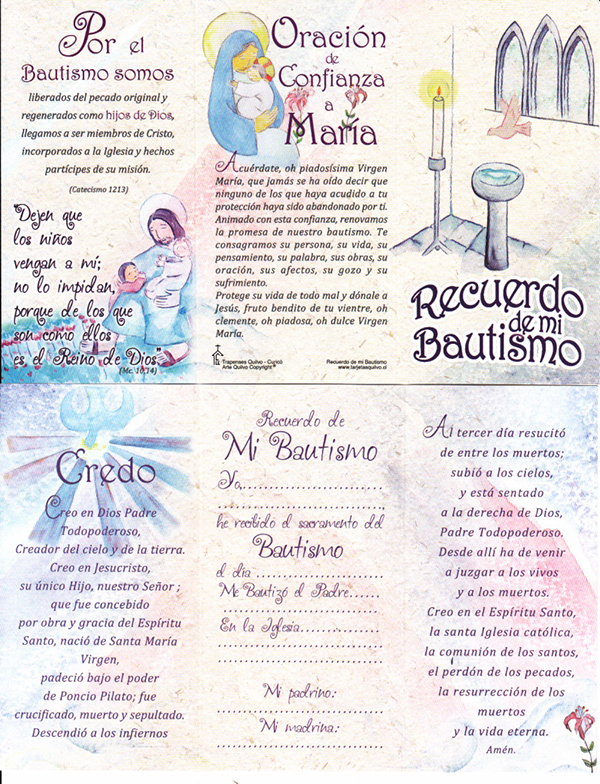 Por el
Bautismo somos
liberados del pecado original y
regenerados como hijos de Dios,
llegamos a ser miembros de Cristo,
incorporados a la Iglesia y hechos
partícipes de su misión.
(Catecismo 1213)
"Dejen que
los niños
vengan a mí;
no lo impidan,
porque de los que
son como ellos
es el Reino de Dios"
(Mc. 10,14)
Oración
de
Confianza
a
María
Acuérdate, oh piadosísima Virgen
María, que jamás se ha oído decir que
ninguno de los que haya acudido a tu
protección haya sido abandonado por ti.
Animado con esta confianza, renovamos
la promesa de nuestro bautismo. Te
consagramos su persona, su vida, su
pensamiento, su palabra, sus obras, su
oración, sus afectos, su gozo y su
sufrimiento.
Protege su vida de todo mal y dónale a
Jesús, fruto bendito de tu vientre, oh
clemente, oh piadosa, oh dulce Virgen
María.
Trapenses Quilvo - Curicó
Arte Quilvo Copyright®
Recuerdo de mi Bautismo
www.tarjetasquilvo.cl
Recuerdo
de mi
Bautismo
Credo
Creo en Dios Padre
Todopoderoso,
Creador del cielo y de la tierra.
Creo en Jesucristo,
su único Hijo, nuestro Señor ;
que fue concebido
por obra y gracia del Espíritu
Santo, nació de Santa María
Virgen,
padeció bajo el poder
de Poncio Pilato; fue
crucificado, muerto y sepultado.
Descendió a los infiernos
Recuerdo de
Mi Bautismo
Yo,......................
he recibido el sacramento del
Bautismo
el día ......................
Me Bautizó el Padre......
En la Iglesia.............
Mi padrino:
Mi madrina:
Al tercer día resucitó
de entre los muertos;
subió a los cielos,
y está sentado
a la derecha de Dios,
Padre Todopoderoso.
Desde allí ha de venir
a juzgar a los vivos
y a los muertos.
Creo en el Espíritu Santo,
la santa Iglesia católica,
la comunión de los santos,
el perdón de los pecados,
la resurrección de los
muertos
y la vida eterna.
Amén.